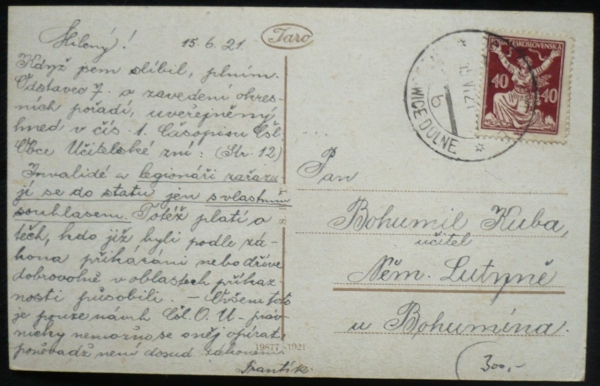 Milený! 15.6.21.
Taro
Když jsem slíbil, plním.
Odstavec 7. o zavedení okres-
ních pořadí, uveřejněný
hned v čís. 1. Časopisu Čsl.
Obce Učitelské zní: (Str. 12)
Invalidé a legionáři zařazu
jí se do statu jen s vlastním
souhlasem. Totéž platí o
těch, kdo již byli podle zá-
kona přikázáni nebo dříve
dobrovolně v oblastech příkaz-
nosti působili. – Ovšem toto
je pouze návrh Čsl. O. U. - práv-
nicky nemožno se o něj opírat,
poněvadž není dosud zákonem
Frantík.
19877 - 1921
ČESKOSLOVENSKÁ
40 40
WICE DOLNE
6
Pan
Bohumil Kuba,
učitel
Něm. Lutyně
u Bohumína.
300,-